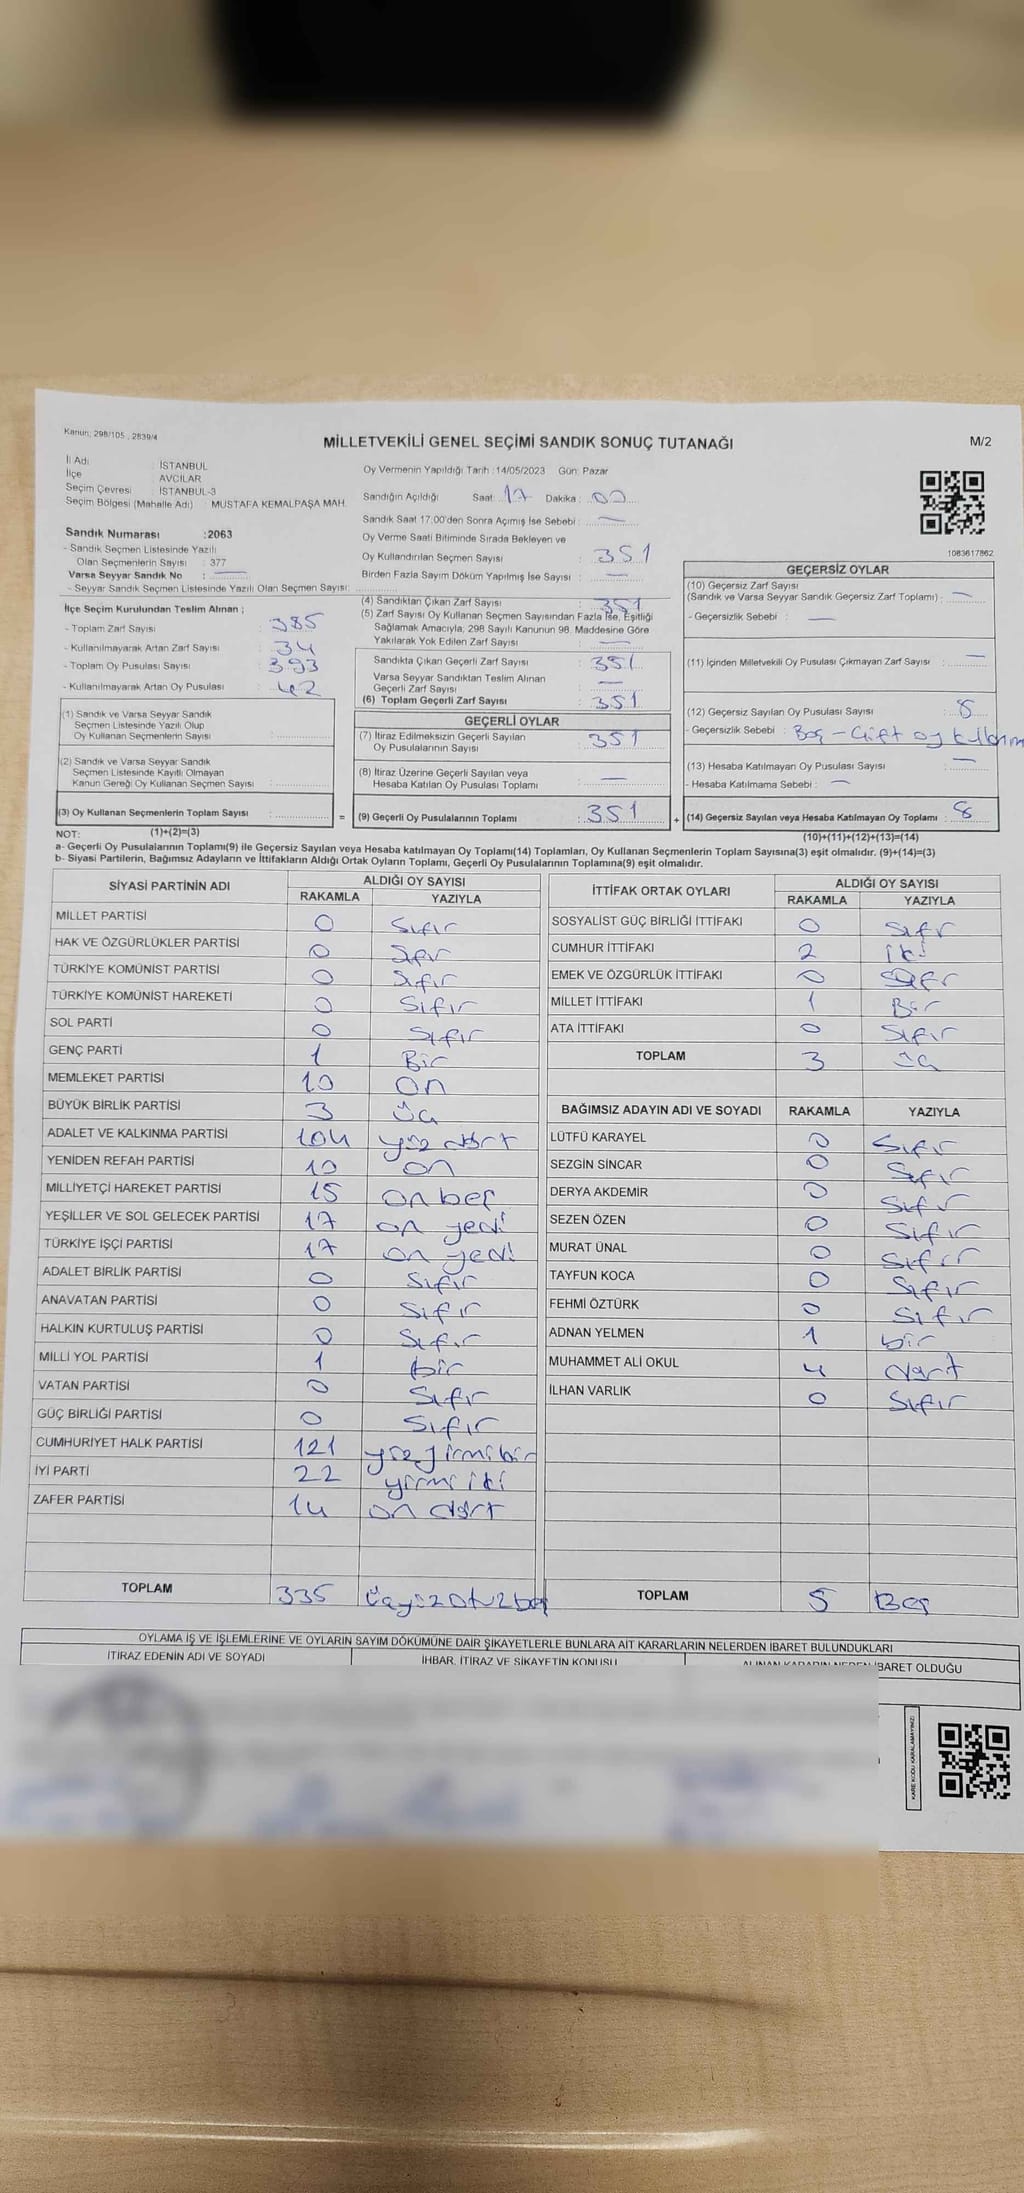 Kanun: 298/105 , 2839/4
MİLLETVEKİLİ GENEL SEÇİMİ SANDIK SONUÇ TUTANAĞI
M/2
İl Adı : İSTANBUL
İlçe AVCILAR
Seçim Çevresi : İSTANBUL-3
Seçim Bölgesi (Mahalle Adı) : MUSTAFA KEMALPAŞA MAH.
Sandık Numarası :2063
- Sandık Seçmen Listesinde Yazılı
Olan Seçmenlerin Sayısı : 377
Varsa Seyyar Sandık No : —
- Seyyar Sandık Seçmen Listesinde Yazılı Olan Seçmen Sayısı:
İlçe Seçim Kurulundan Teslim Alınan ;
- Toplam Zarf Sayısı : 385
- Kullanılmayarak Artan Zarf Sayısı : 34
- Toplam Oy Pusulası Sayısı : 393
- Kullanılmayarak Artan Oy Pusulası : 42
(1) Sandık ve Varsa Seyyar Sandık
Seçmen Listesinde Yazılı Olup
Oy Kullanan Seçmenlerin Sayısı :
(2) Sandık ve Varsa Seyyar Sandık
Seçmen Listesinde Kayıtlı Olmayan
Kanun Gereği Oy Kullanan Seçmen Sayısı :
(3) Oy Kullanan Seçmenlerin Toplam Sayısı :
=
Oy Vermenin Yapıldığı Tarih :14/05/2023 Gün: Pazar
Sandığın Açıldığı Saat: 17 Dakika : 00
Sandık Saat 17:00'den Sonra Açımış İse Sebebi : —
Oy Verme Saati Bitiminde Sırada Bekleyen ve
Oy Kullandırılan Seçmen Sayısı : 351
Birden Fazla Sayım Döküm Yapılmış İse Sayısı : —
(4) Sandıktan Çıkan Zarf Sayısı : 351
(5) Zarf Sayısı Oy Kullanan Seçmen Sayısından Fazla İse, Eşitliği
Sağlamak Amacıyla, 298 Sayılı Kanunun 98. Maddesine Göre
Yakılarak Yok Edilen Zarf Sayısı : —
Sandıkta Çıkan Geçerli Zarf Sayısı : 351
Varsa Seyyar Sandıktan Teslim Alınan
Geçerli Zarf Sayısı : —
(6) Toplam Geçerli Zarf Sayısı : 351
GEÇERLİ OYLAR
(7) İtiraz Edilmeksizin Geçerli Sayılan
Oy Pusulalarının Sayısı : 351
(8) İtiraz Üzerine Geçerli Sayılan veya
Hesaba Katılan Oy Pusulası Toplamı : —
(9) Geçerli Oy Pusulalarının Toplamı : 351
+
1083617862
GEÇERSİZ OYLAR
(10) Geçersiz Zarf Sayısı
(Sandık ve Varsa Seyyar Sandık Geçersiz Zarf Toplamı) : —
- Geçersizlik Sebebi : —
(11) İçinden Milletvekili Oy Pusulası Çıkmayan Zarf Sayısı : —
(12) Geçersiz Sayılan Oy Pusulası Sayısı : 8
- Geçersizlik Sebebi : Boş - Çift oy
(13) Hesaba Katılmayan Oy Pusulası Sayısı : —
- Hesaba Katılmama Sebebi : —
(14) Geçersiz Sayılan veya Hesaba Katılmayan Oy Toplamı : 8
NOT: (1)+(2)=(3)
(10)+(11)+(12)+(13)=(14)
a- Geçerli Oy Pusulalarının Toplamı(9) ile Geçersiz Sayılan veya Hesaba katılmayan Oy Toplamı(14) Toplamları, Oy Kullanan Seçmenlerin Toplam Sayısına(3) eşit olmalıdır. (9)+(14)=(3)
b- Siyasi Partilerin, Bağımsız Adayların ve İttifakların Aldığı Ortak Oyların Toplamı, Geçerli Oy Pusulalarının Toplamına(9) eşit olmalıdır.
SİYASİ PARTİNİN ADI ALDIĞI OY SAYISI
RAKAMLA YAZIYLA
MİLLET PARTİSİ 0 Sıfır
HAK VE ÖZGÜRLÜKLER PARTİSİ 0 Sıfır
TÜRKİYE KOMÜNİST PARTİSİ 0 Sıfır
TÜRKİYE KOMÜNİST HAREKETİ 0 Sıfır
SOL PARTİ 0 Sıfır
GENÇ PARTİ 1 Bir
MEMLEKET PARTİSİ 10 On
BÜYÜK BİRLİK PARTİSİ 3 üç
ADALET VE KALKINMA PARTİSİ 104 yüz dört
YENİDEN REFAH PARTİSİ 10 on
MİLLİYETÇİ HAREKET PARTİSİ 15 on beş
YEŞİLLER VE SOL GELECEK PARTİSİ 17 on yedi
TÜRKİYE İŞÇİ PARTİSİ 17 on yedi
ADALET BİRLİK PARTİSİ 0 Sıfır
ANAVATAN PARTİSİ 0 Sıfır
HALKIN KURTULUŞ PARTİSİ 0 Sıfır
MİLLİ YOL PARTİSİ 1 bir
VATAN PARTİSİ 0 Sıfır
GÜÇ BİRLİĞİ PARTİSİ 0 Sıfır
CUMHURİYET HALK PARTİSİ 121 yüzyirmibir
İYİ PARTİ 22 yirmi iki
ZAFER PARTİSİ 14 on dört
TOPLAM 335 üçyüzotuzbeş
İTTİFAK ORTAK OYLARI ALDIĞI OY SAYISI
RAKAMLA YAZIYLA
SOSYALİST GÜÇ BİRLİĞİ İTTİFAKI 0 Sıfır
CUMHUR İTTİFAKI 2 iki
EMEK VE ÖZGÜRLÜK İTTİFAKI 0 Sıfır
MİLLET İTTİFAKI 1 Bir
ATA İTTİFAKI 0 Sıfır
TOPLAM 3 üç
BAĞIMSIZ ADAYIN ADI VE SOYADI RAKAMLA YAZIYLA
LÜTFÜ KARAYEL 0 Sıfır
SEZGİN SİNCAR 0 Sıfır
DERYA AKDEMİR 0 Sıfır
SEZEN ÖZEN 0 Sıfır
MURAT ÜNAL 0 Sıfır
TAYFUN KOCA 0 Sıfır
FEHMİ ÖZTÜRK 0 Sıfır
ADNAN YELMEN 1 bir
MUHAMMET ALİ OKUL 4 dört
İLHAN VARLIK 0 Sıfır
TOPLAM 5 Beş
OYLAMA İŞ VE İŞLEMLERİNE VE OYLARIN SAYIM DÖKÜMÜNE DAİR ŞİKAYETLERLE BUNLARA AİT KARARLARIN NELERDEN İBARET BULUNDUKLARI
İTİRAZ EDENİN ADI VE SOYADI
İHBAR, İTİRAZ VE ŞİKAYETİN KONUSU
ALINAN KARARIN NEDEN İBARET OLDUĞU
KARE KODU KARALAMAYINIZ!